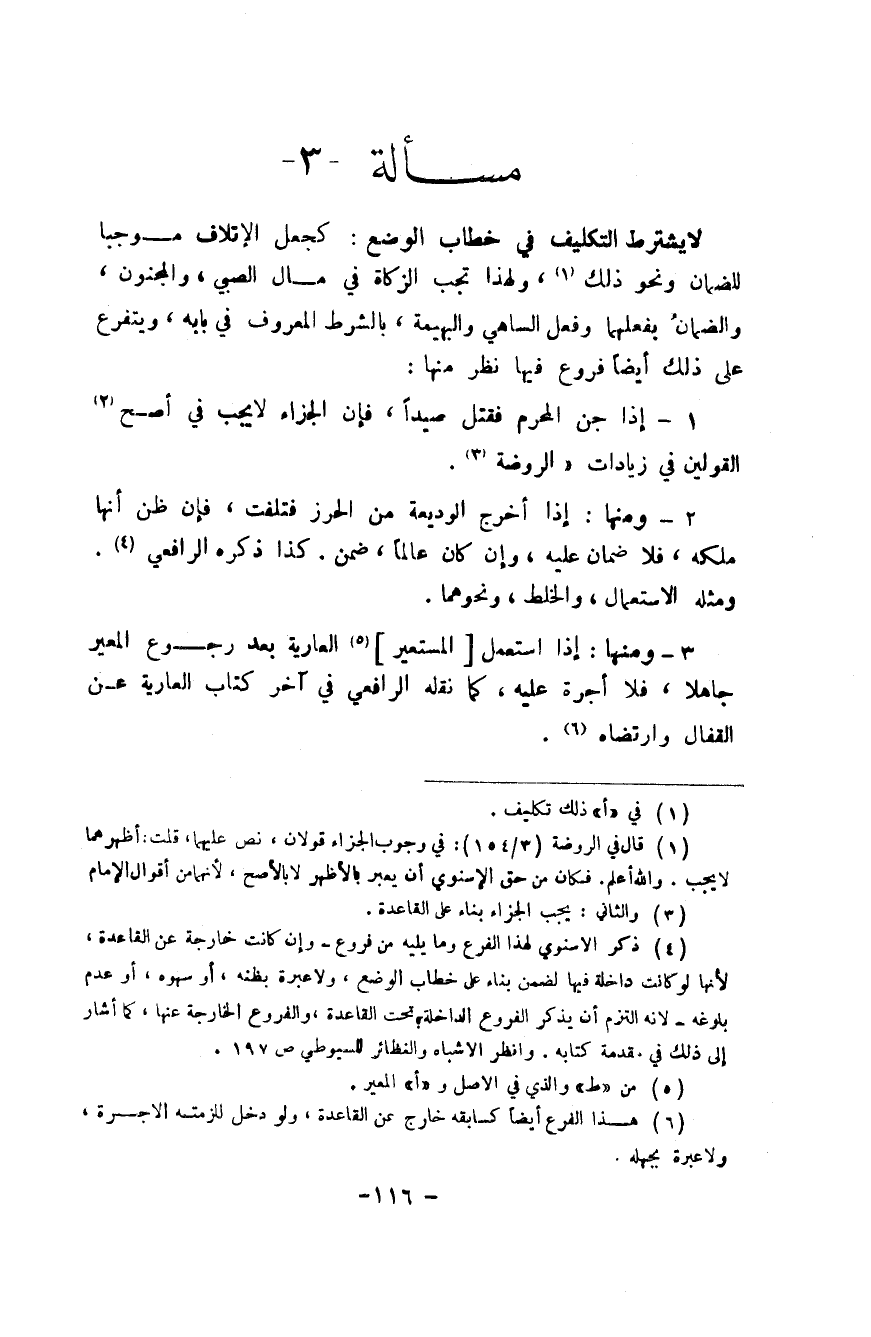 مسألة -٣-
لايشترط التكليف في خطاب الوضع : كجعل الإتلاف موجبا
للضمان ونحو ذلك (١) ، ولهذا تجب الزكاة في مال الصبي ، والمجنون ،
والضمانُ بفعلهما وفعل الساهي والبهيمة ، بالشرط المعروف في بابه ، ويتفرع
على ذلك أيضاً فروع فيها نظر منها :
١ – إذا جن المحرم فقتل صيداً ، فإن الجزاء لايجب في أصح (٢)
القولين في زيادات « الروضة (٣) .
٢ – ومنها : إذا أخرج الوديعة من الحرز فتلفت ، فإن ظن أنها
ملكه ، فلا ضمان عليه ، وإن كان عالماً ، ضمن . كذا ذكره الرافعي (٤) .
ومثله الاستعمال ، والخلط ، ونحوهما .
٣ – ومنها : إذا استعمل [ المستعير ] (٥) العارية بعد رجوع المعير
جاهلا ، فلا أجرة عليه ، كما نقله الرافعي في آخر كتاب العارية عن
القفال وارتضاه (٦) .
(١) في «أ» ذلك تكليف .
(١) قال في الروضة (١٥٤/٣) : في وجوب الجزاء قولان ، نص عليهما ، قلت : أظهرهما
لايجب . والله أعلم . فكان من حق الإسنوي أن يعبر بالأظهر لابالأصح ، لأنهما من أقوال الإمام
(٣) والثاني : يجب الجزاء بناء على القاعدة .
(٤) ذكر الاسنوي لهذا الفرع وما يليه من فروع – وإن كانت خارجة عن القاعدة ،
لأنها لو كانت داخلة فيها لضمن بناء على خطاب الوضع ، ولا عبرة بظنه ، أو سهوه ، أو عدم
بلوغه – لانه التزم أن يذكر الفروع الداخلة تحت القاعدة ، والفروع الخارجة عنها ، كما أشار
إلى ذلك في مقدمة كتابه . وانظر الاشباه والنظائر للسيوطي ص ١٩٧ .
(٥) من «ط» والذي في الاصل و «أ» المعير .
(٦) هذا الفرع أيضاً كسابقه خارج عن القاعدة ، ولو دخل للزمته الاجرة ،
ولاعبرة بجهله .
– ١١٦-